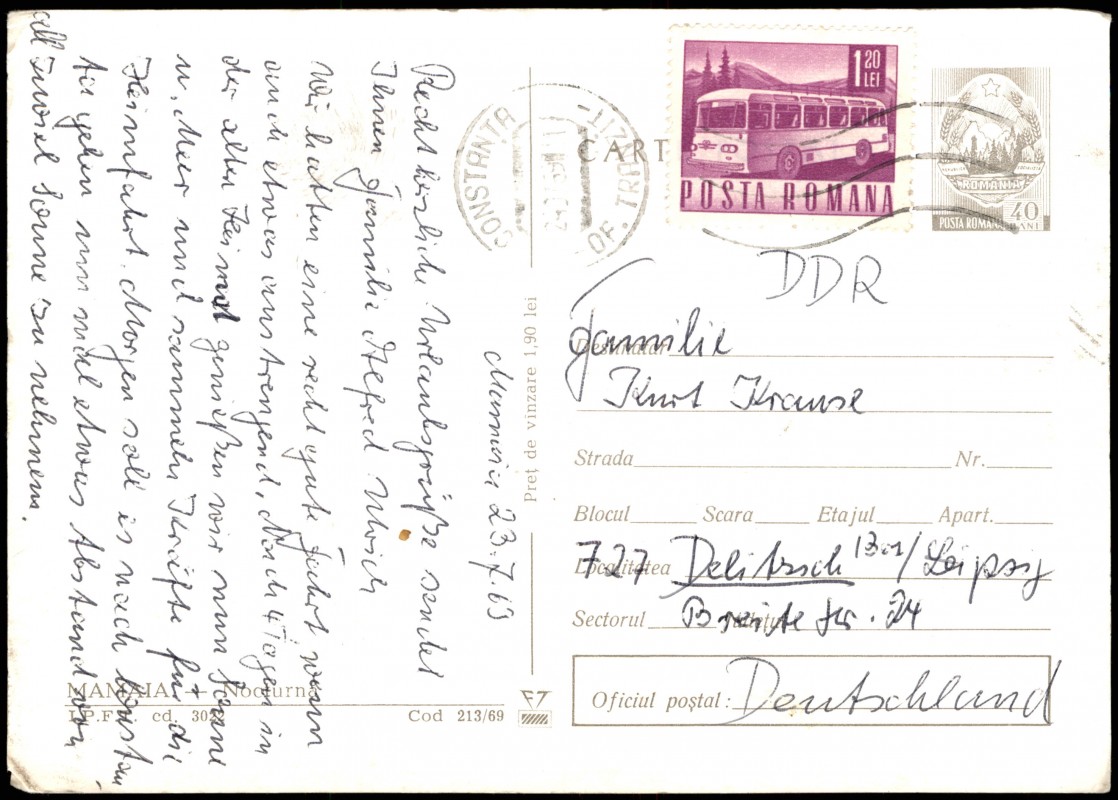 Mamaia 23.7.69
Recht herzliche Urlaubsgrüße sendet
Ihnen Familie Alfred Ulrich
Wir hatten eine recht gute Fahrt wenn
auch etwas anstrengend. Nach 4 Tagen in
der alten Heimat genießen wir nun Sonne
u. Meer und sammeln Kräfte für die
Heimfahrt. Morgen soll es nach
gehen um mal etwas Abstand von
all soviel Sonne zu nehmen.
CONSTANTA
OF. TRANZIT
CART
1 20
LEI
POSTA ROMANA
ROMANIA
POSTA ROMANA
40
BANI
DDR
Destinatar
Familie
Kurt Krause
Strada Nr.
Blocul Scara Etajul Apart.
Localitatea
727 Delitzsch Bez/Leipzig
Sectorul
Breite Str. 24
Oficiul poștal:
Deutschland
Preț de vînzare 1,90 lei
MAMAIA — Nocturnă
I.P.F. cd.
Cod 213/69